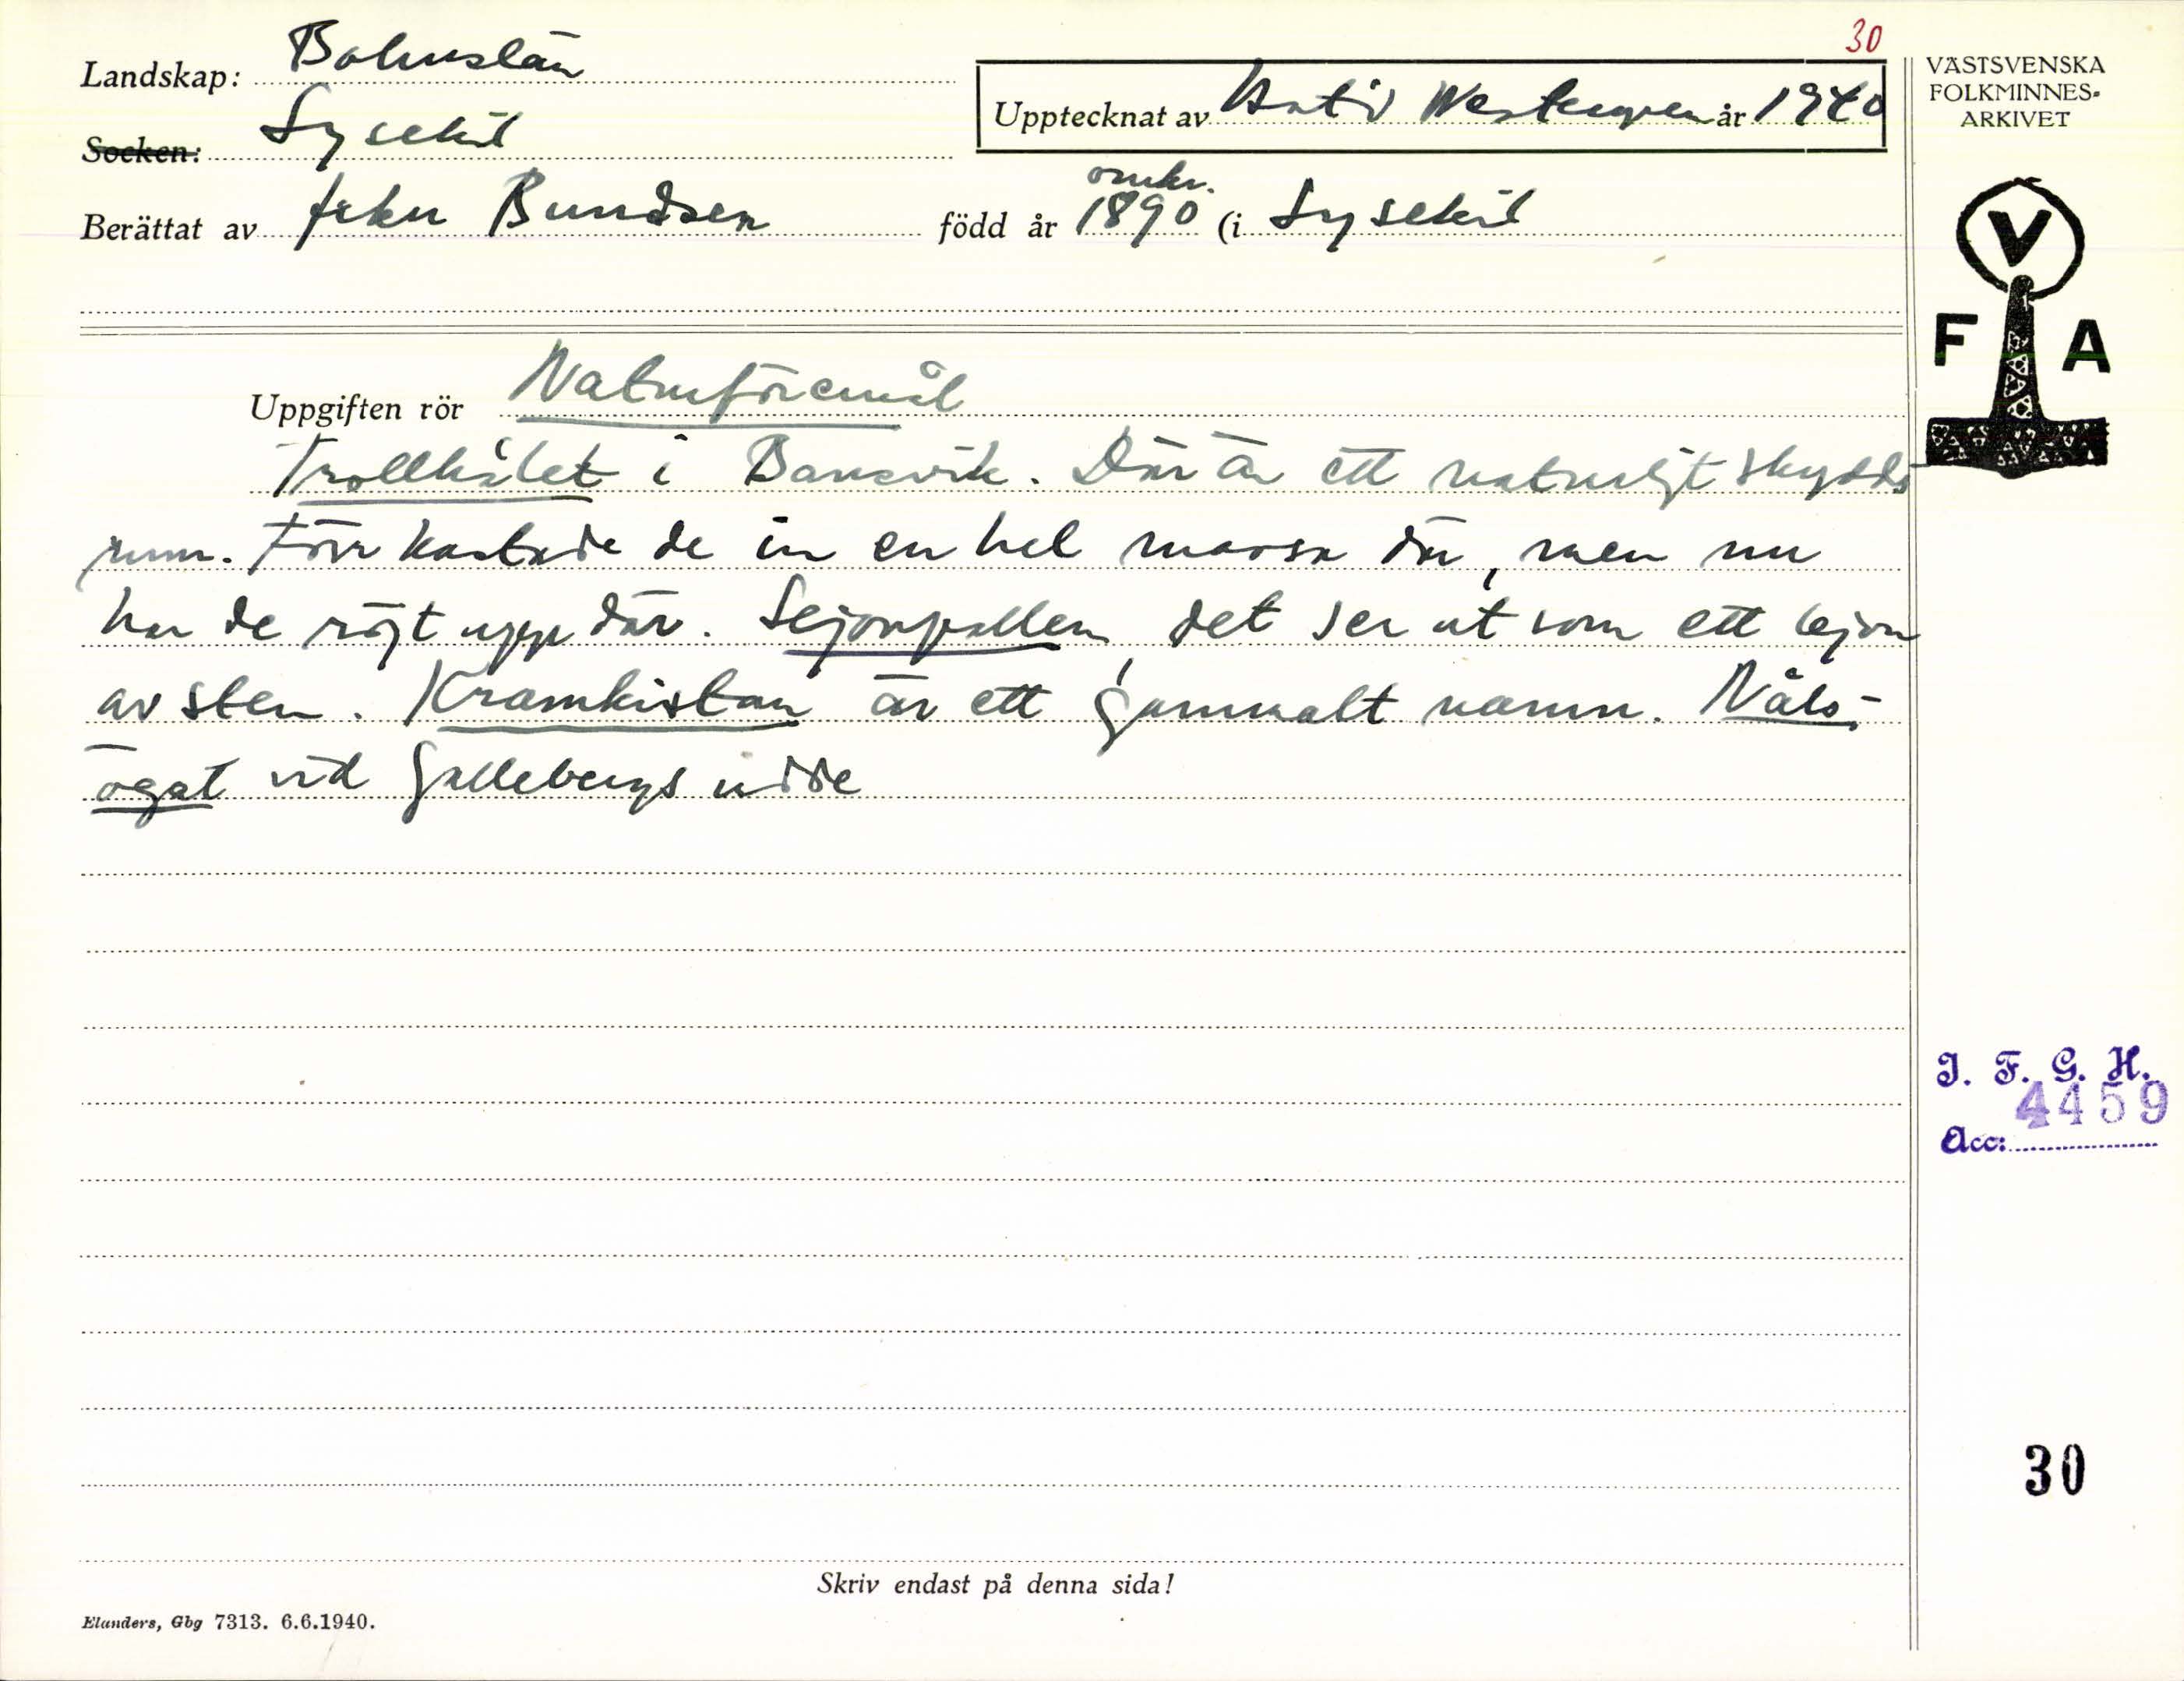 30
Landskap: Bohuslän
Upptecknat av Westergren år 1940
VÄSTSVENSKA
FOLKMINNES-
ARKIVET
Socken: Lysekil
Berättat av frkn Bundsen född år omkr. 1890 (i Lysekil
V
F A
Uppgiften rör Naturföremål
Trollhålet i Banevik. Där är ett naturligt skydds
rum. Förr kastade de in en hel massa där, men nu
har de röjt upp där. Lejonpallen, det ser ut som ett lejon
av sten. Kramkistan är ett gammalt namn. Nåls-
ögat vid Gallebergs udde
I. F. G. H.
4459
Acc:
30
Skriv endast på denna sida!
Elanders, Gbg 7313. 6.6.1940.